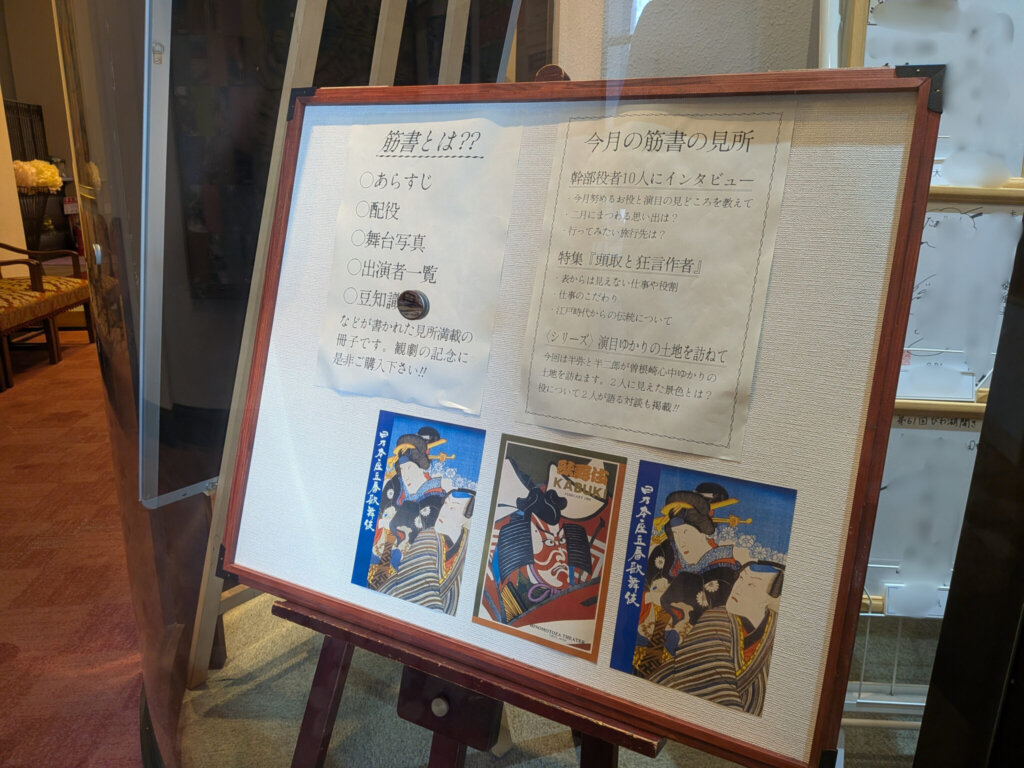 筋書とは??
○あらすじ
○配役
○舞台写真
○出演者一覧
○豆知識
などが書かれた見所満載の
冊子です。観劇の記念に
是非ご購入下さい!!
今月の筋書の見所
幹部役者10人にインタビュー
・今月努めるお役と演目の見どころを教えて
・二月にまつわる思い出は?
・行ってみたい旅行先は?
特集『頭取と狂言作者』
・表からは見えない仕事や役割
・仕事のこだわり
・江戸時代からの伝統について
〈シリーズ〉演目ゆかりの土地を訪ねて
今回は半弥と半二郎が曽根崎心中ゆかりの
土地を訪ねます。2人に見えた景色とは?
役について2人が語る対談も掲載!!
歌舞伎
KABUKI
THEATER